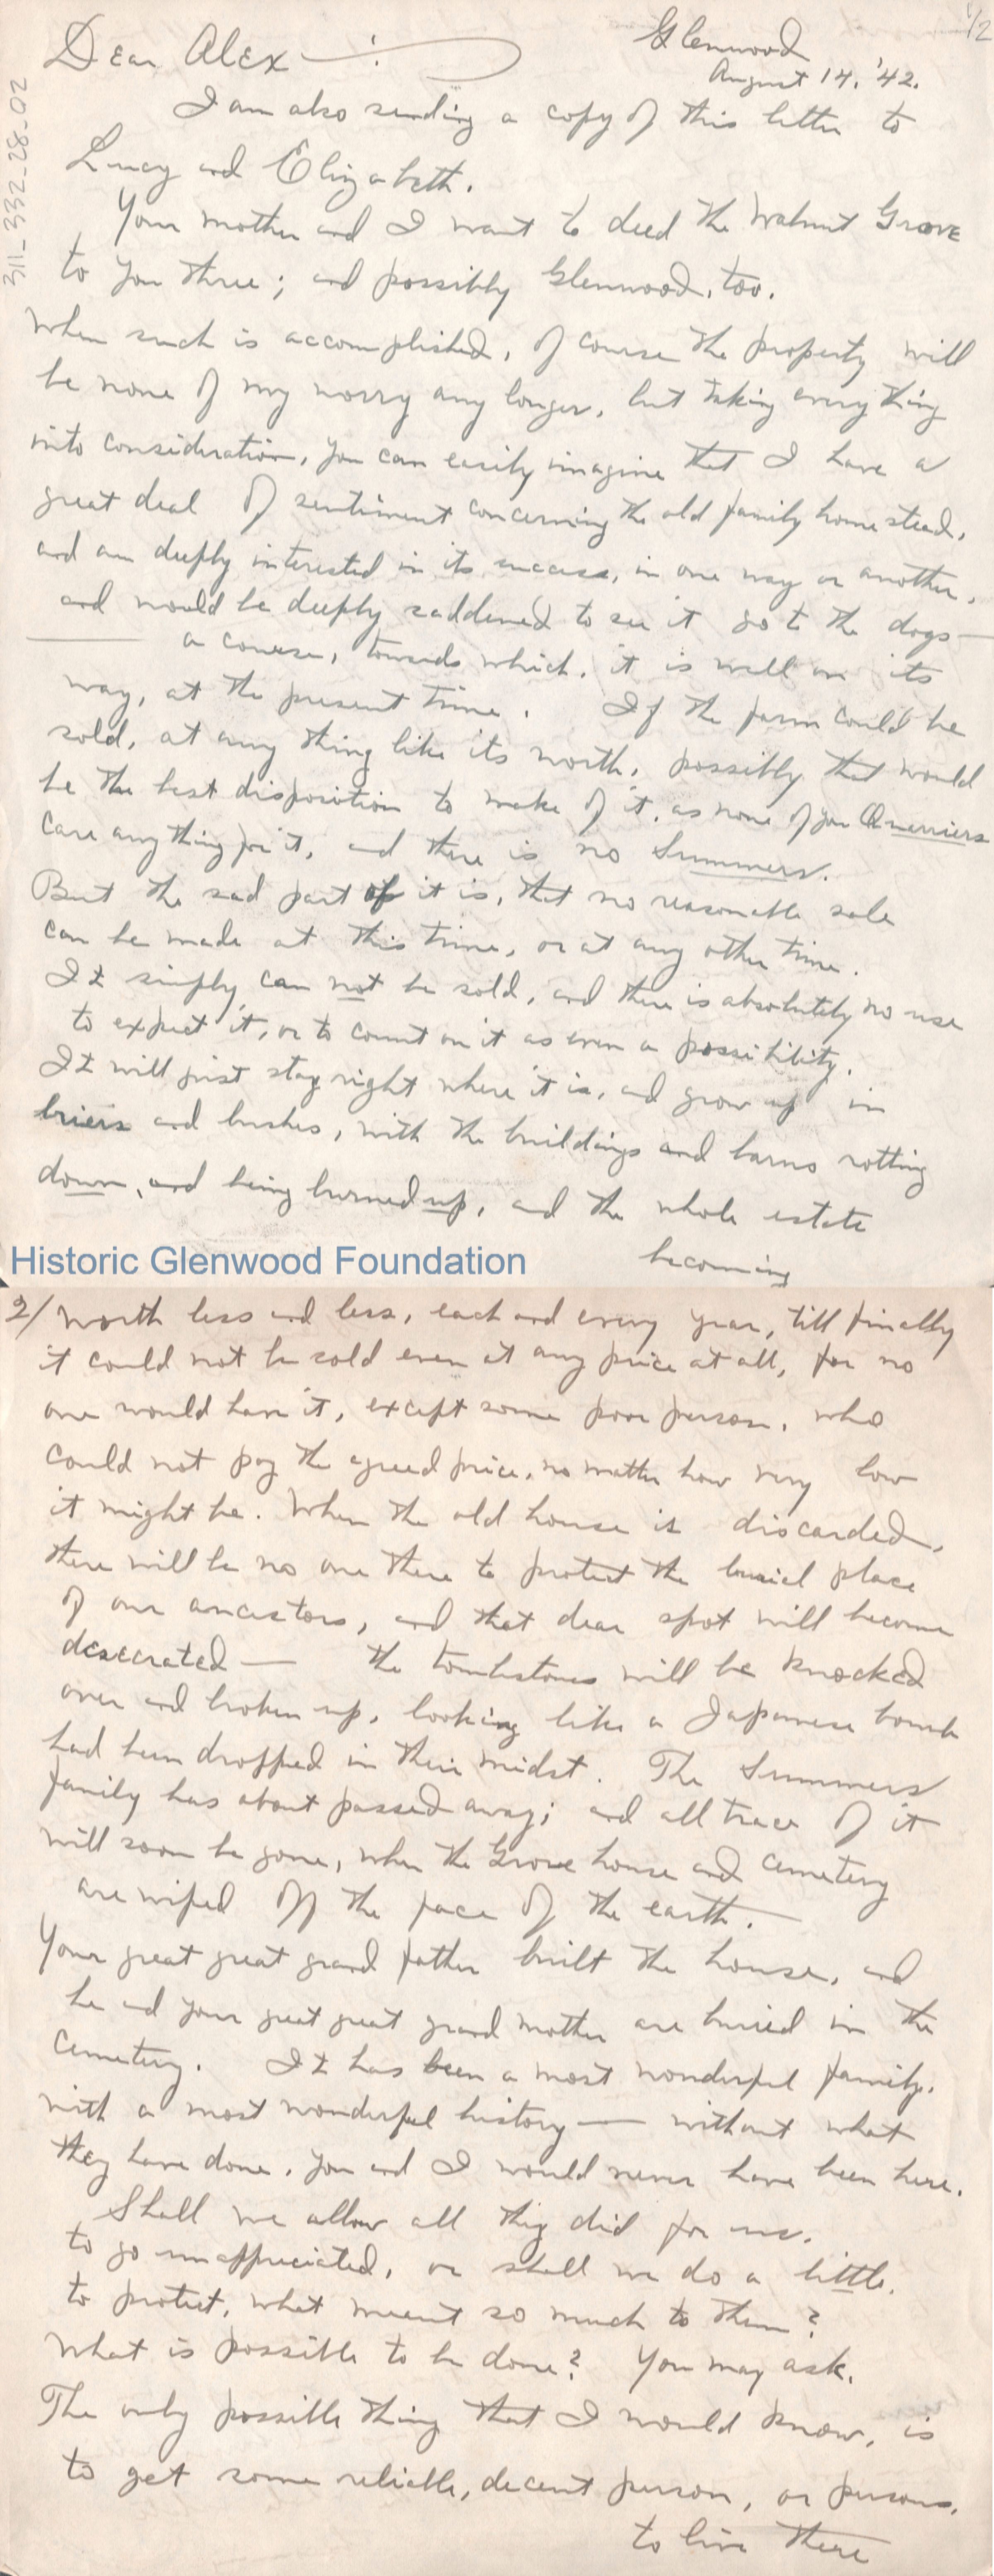 1/2
Glenwood
August 14, '42.
Dear Alex — :
I am also sending a copy of this letter to
Lucy and Elizabeth.
Your mother and I want to deed the Walnut Grove
to you three; and possibly Glenwood, too.
When such is accomplished, of course the property will
be none of my worry any longer, but taking every thing
into consideration, you can easily imagine that I have a
great deal of sentiment concerning the old family home stead,
and am deeply interested in its success, in one way or another,
and would be deeply saddened to see it go to the dogs—
— a course, towards which, it is well on its
way, at the present time. If the farm could be
sold, at any thing like its worth, possibly that would
be the best disposition to make of it, as none of you Quarriers
care any thing for it, and there is no Summers.
But the sad part of it is, that no reasonable sale
can be made at this time, or at any other time.
It simply can not be sold, and there is absolutely no use
to expect it, or to count on it as even a possibility.
It will just stay right where it is, and grow up in
briers and bushes, with the buildings and barns rotting
down, and being burned up, and the whole estate
becoming
311_332_28_02
Historic Glenwood Foundation
2/ worth less and less, each and every year, till finally
it could not be sold even at any price at all, for no
one would have it, except some poor person, who
could not pay the agreed price, no matter how very low
it might be. When the old house is discarded,
there will be no one there to protect the burial place
of our ancestors, and that dear spot will become
desecrated — the tombstones will be knocked
over and broken up, looking like a Japanese bomb
had been dropped in their midst. The Summers
family has about passed away; and all trace of it
will soon be gone, when the Grove house and cemetery
are wiped off the face of the earth. —
Your great great grand father built the house, and
he and your great great grand mother are buried in the
cemetery. It has been a most wonderful family,
with a most wonderful history — without what
they have done, you and I would never have been here.
Shall we allow all they did for us,
to go unappreciated, or shall we do a little,
to protect, what meant so much to them?
What is possible to be done? You may ask.
The only possible thing that I would know, is
to get some reliable, decent person, or persons,
to live there